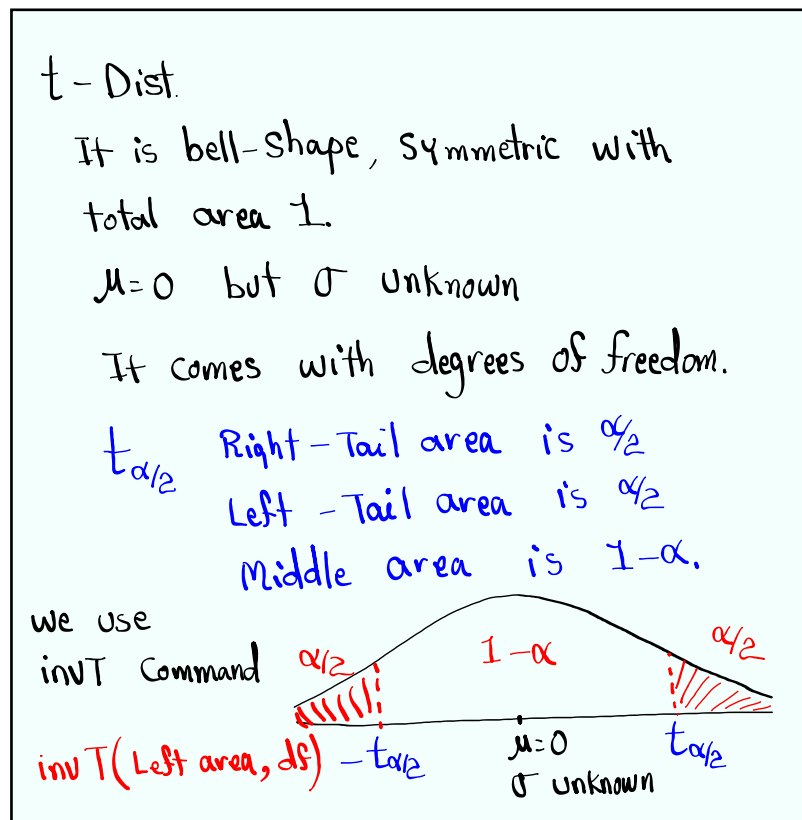 t-Dist.
It is bell-shape, symmetric with
total area 1.
μ=0 but σ unknown
It comes with degrees of freedom.
tα/2 Right-Tail area is α/2
Left-Tail area is α/2
Middle area is 1-α.
we use
invT Command
α/2 1-α α/2
invT(Left area, df) -tα/2 μ=0 tα/2
σ unknown